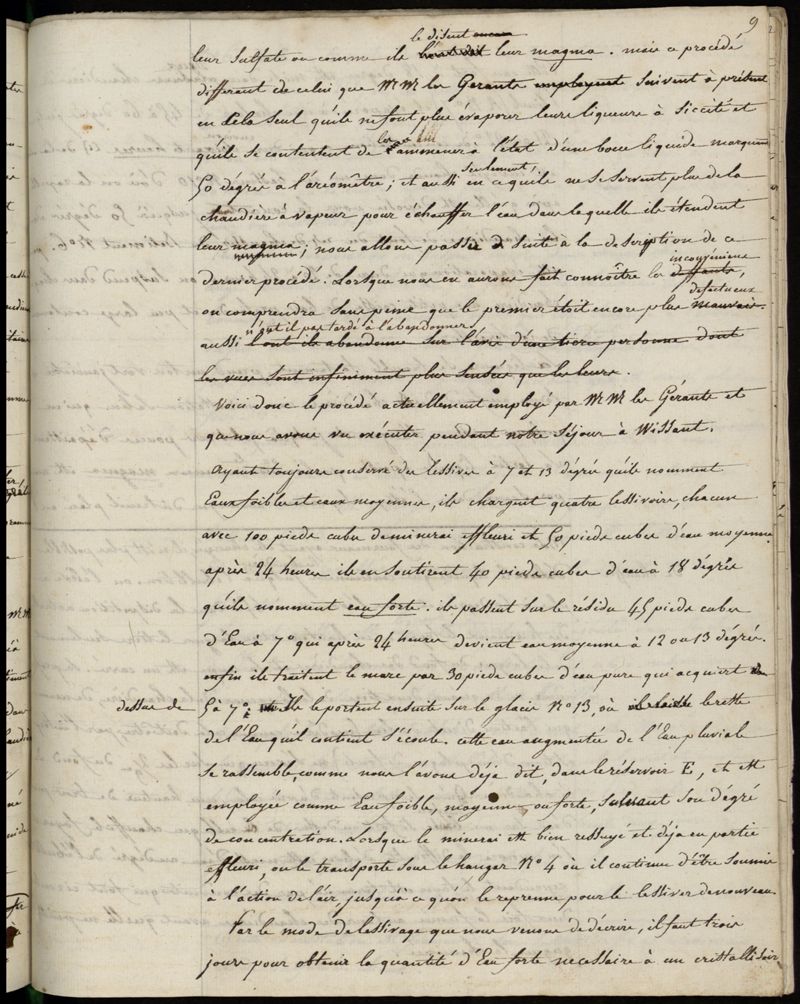 9
le disent aucun
leur sulfate ou comme ils l'ont dit leur magma. mais ce procédé
different de celui que MM les Gerants employent suivent à présent
en cela seul qu'ils ne font plus évaporer leurs liqueurs à siccité et
qu'ils se contentent de les ammener à l'état d'une boue liquide marquant
50 dégrés à l'aréomêtre; et aussi en ce qu'ils ne se servent plus de la
seulement,
chaudière à vapeur pour échauffer l'eau dans laquelle ils étendent
leur magma; nous allons passer de suite à la description de ce
inconvéniens
dernier procédé. Lorsque nous en aurons fait connoître les deffauts,
défectueux
on comprendra sans peine que le premier étoit encore plus mauvais.
n'ont ils pas tardé à l'abandonner
aussi l'ont ils abandonné sur l'avis d'une tierce personne dont
les vues sont infiniment plus sensées que les leurs.
Voici donc le procédé actuellement employé par MM les Gérants et
que nous avons vu exécuter pendant notre séjour à Wissant.
Ayant toujours conservé des lessives à 7 et 13 dégrés qu'ils nomment
Eaux foibles et eaux moyennes, ils chargent quatre lessivoirs, chacun
avec 100 pieds cubes de minerai effleuri et 50 pieds cubes d'eau moyenne.
après 24 heures ils en soutirent 40 pieds cubes d'eau à 18 dégrés
qu'ils nomment eau forte. ils passent sur le résidu 45 pieds cubes
d'Eau à 7° qui après 24 heures devient eau moyenne à 12 ou 13 dégrés.
enfin ils traitent le marc par 30 pieds cubes d'eau pure qui acquiert
dessus de 5 à 7°. Ils le portent ensuite sur le glacis N° 13, où il laisse le reste
de l'Eau qu'il contient s'écoule. cette eau augmentée de l'Eau pluviale
se rassemble, comme nous l'avons déja dit, dans le réservoir E, et est
employée comme Eau foible, moyenne ou forte, suivant son dégré
de concentration. Lorsque le minerai est bien ressuyé et déja en partie
effleuri, on le transporte sous le hangar N° 4 où il continue d'être soumis
à l'action de l'air, jusqu'à ce qu'on le reprenne pour le lessiver de nouveau.
Par le mode de lessivage que nous venons de décrire, il faut trois
jours pour obtenir la quantité d'Eau forte necessaire à un cristallisoir